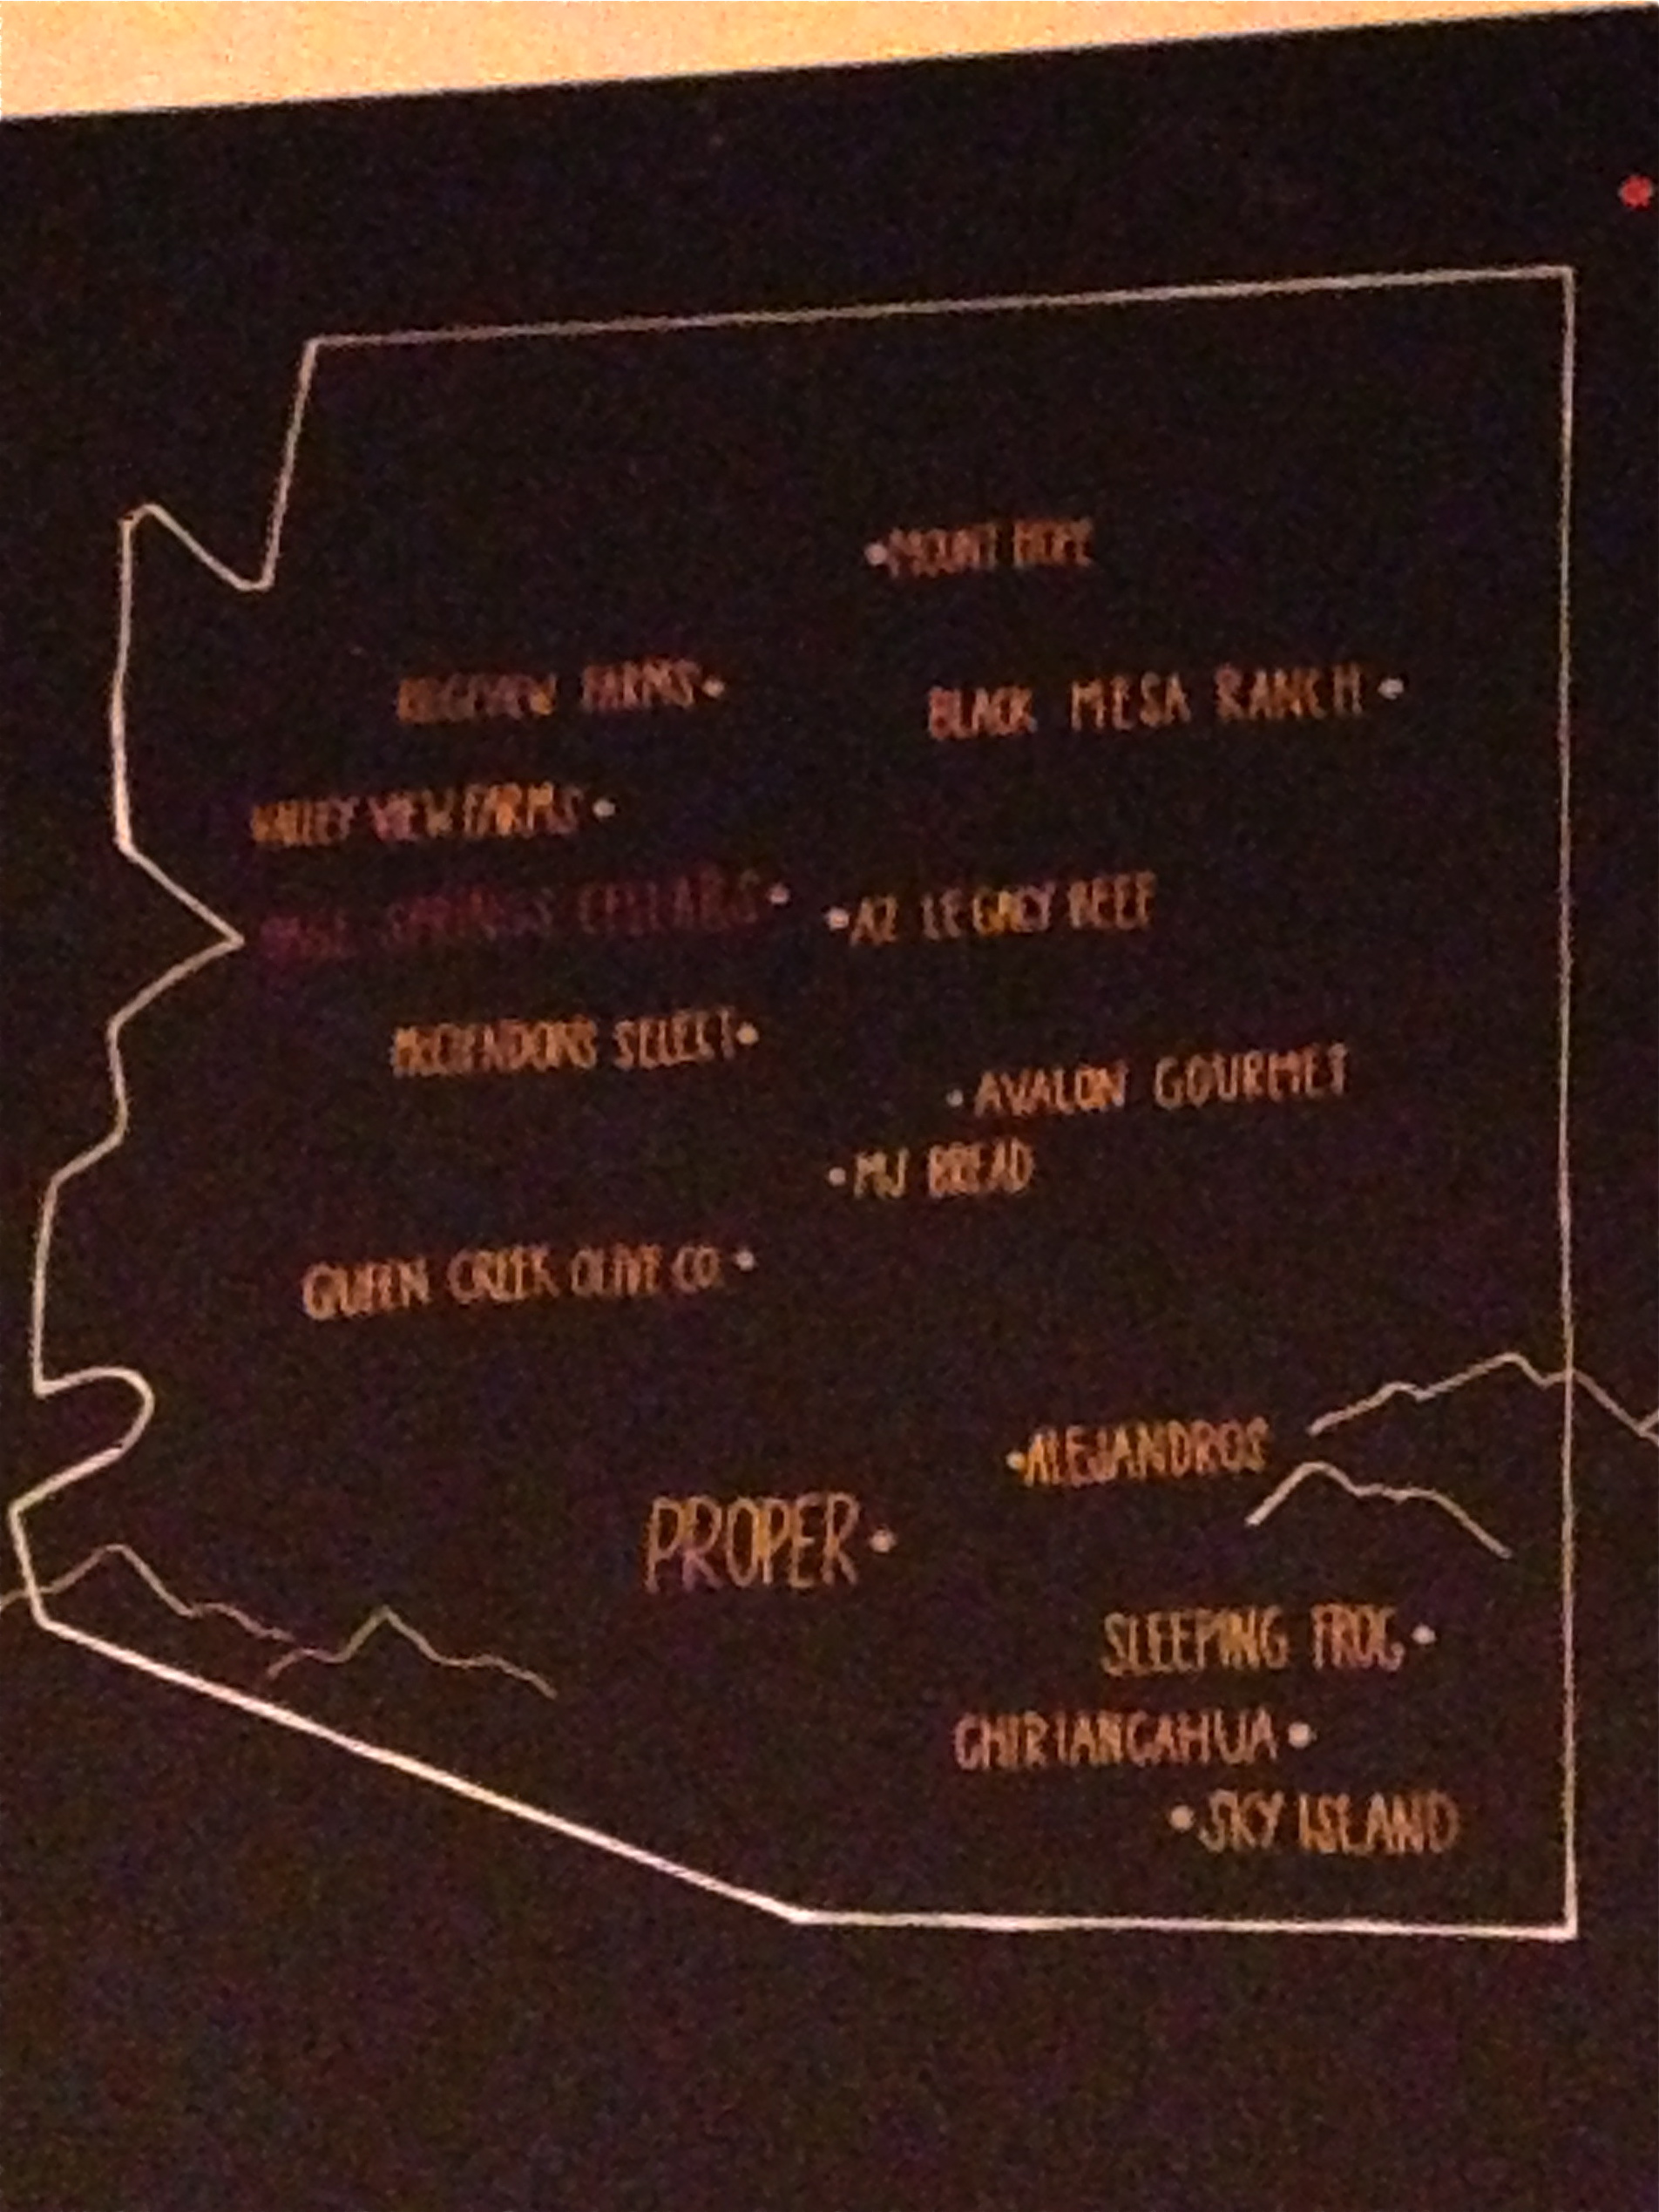 MOUNT HOPE
RIDGEVIEW FARMS
BLACK MESA RANCH
VALLEY VIEW FARMS
PAGE SPRINGS CELLARS
AZ LEGACY BEEF
SELECT
AVALON GOURMET
MJ BREAD
QUEEN CREEK OLIVE CO.
ALEJANDROS
PROPER
SLEEPING FROG
CHIRIANCAHUA
SKY ISLAND